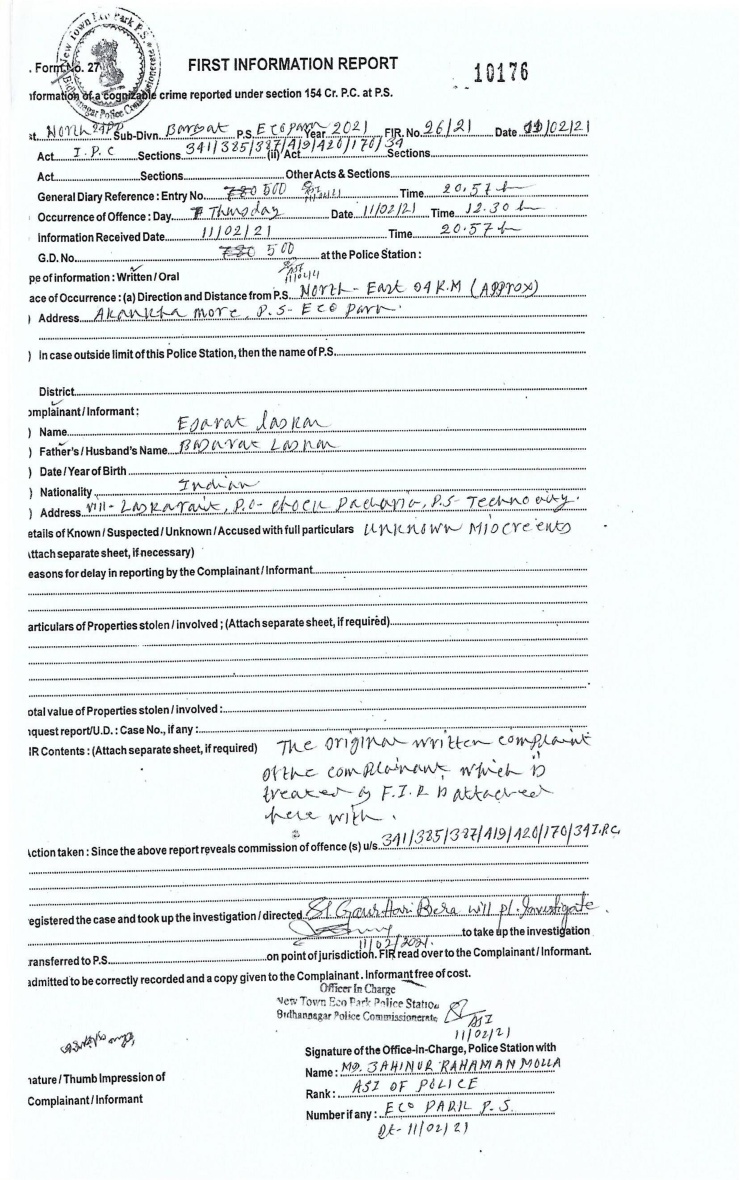 New Town Eco Park P.S.
Bidhannagar Police Commissionerate
. Form No. 27
FIRST INFORMATION REPORT
10176
nformation of a cognizable crime reported under section 154 Cr. P.C. at P.S.
st. North 24 Sub-Divn. Barasat P.S. Eco park Year 2021 FIR. No. 26/21 Date 11/02/21
Act I.P.C Sections 341/385/387/419/420/170/34 (ii) Act Sections
Act Sections Other Acts & Sections
General Diary Reference : Entry No. 500 Time 20.57 hr
11/02/21
Occurrence of Offence : Day. Thursday Date 11/02/21 Time 12.30 hr
Information Received Date 11/02/21 Time 20.57 hr
G.D. No. 500 at the Police Station :
ASI
11/02/21
pe of information : Written / Oral
ace of Occurrence : (a) Direction and Distance from P.S. North - East 04 K.M (Approx)
) Address Akankha more, P.S- Eco Park.
) In case outside limit of this Police Station, then the name of P.S.
District
omplainant / Informant :
) Name Esarat Laskar
) Father's / Husband's Name Basarat Laskar
) Date / Year of Birth
) Nationality Indian
) Address vill- Laskarait, P.O- , P.S- Techno city.
etails of Known / Suspected / Unknown / Accused with full particulars Unknown Miscreents
ttach separate sheet, if necessary)
easons for delay in reporting by the Complainant / Informant
articulars of Properties stolen / involved ; (Attach separate sheet, if required)
otal value of Properties stolen / involved :
nquest report/U.D. : Case No., if any :
IR Contents : (Attach separate sheet, if required) The original written complaint
of the complainant, which is
treated as F.I.R is attached
here with.
Action taken : Since the above report reveals commission of offence (s) u/s. 341/385/387/419/420/170/34 I.P.C.
egistered the case and took up the investigation / directed SI Gour Hari Bera will pl. Investigate.
to take up the investigation
11/02/2021.
ransferred to P.S. on point of jurisdiction. FIR read over to the Complainant / Informant.
admitted to be correctly recorded and a copy given to the Complainant. Informant free of cost.
Officer In Charge
New Town Eco Park Police Station
Bidhannagar Police Commissionerate
ASI
11/02/21
Signature of the Office-In-Charge, Police Station with
Name : MD. JAHINUR RAHAMAN MOLLA
nature / Thumb Impression of
Rank : ASI OF POLICE
Complainant / Informant
Number if any : ECO PARK P.S.
Dt- 11/02/21